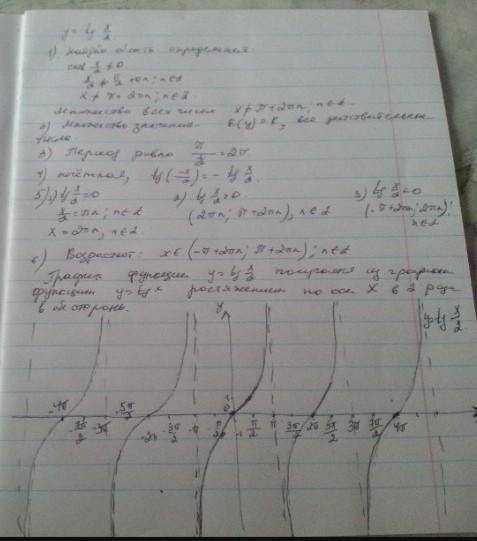 y = tg x/2
1) найдём область определения
cos x/2 ≠ 0
x/2 ≠ π/2 + πn; n∈Z
x ≠ π + 2πn; n∈Z.
множество всех чисел x ≠ π + 2πn, n∈Z.
2) множество значений E(y) = R, все действительные
числа.
3) Период равно π/½ = 2π
4) нечётная, tg(-x/2) = - tg x/2.
5) 1) tg x/2 = 0 2) tg x/2 > 0. 3) tg x/2 < 0
x/2 = πn; n∈Z (2πn; π+2πn), n∈Z (-π+2πn; 2πn);
x = 2πn, n∈Z. n∈Z
6) Возрастает: x∈(-π+2πn; π+2πn); n∈Z
График функции y = tg x/2 получается из графика
функции y = tg x растяжением по оси X в 2 раза
в обе стороны.
y y = tg x/2
-4π -7π/2 -3π -5π/2 -2π -3π/2 -π -π/2 0 π/2 π 3π/2 2π 5π/2 3π 7π/2 4π